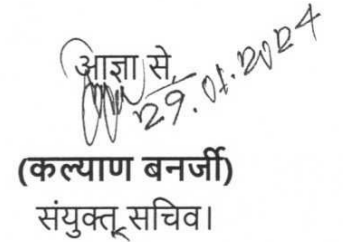 आज्ञा से,
29.01.2024
(कल्याण बनर्जी)
संयुक्त सचिव।